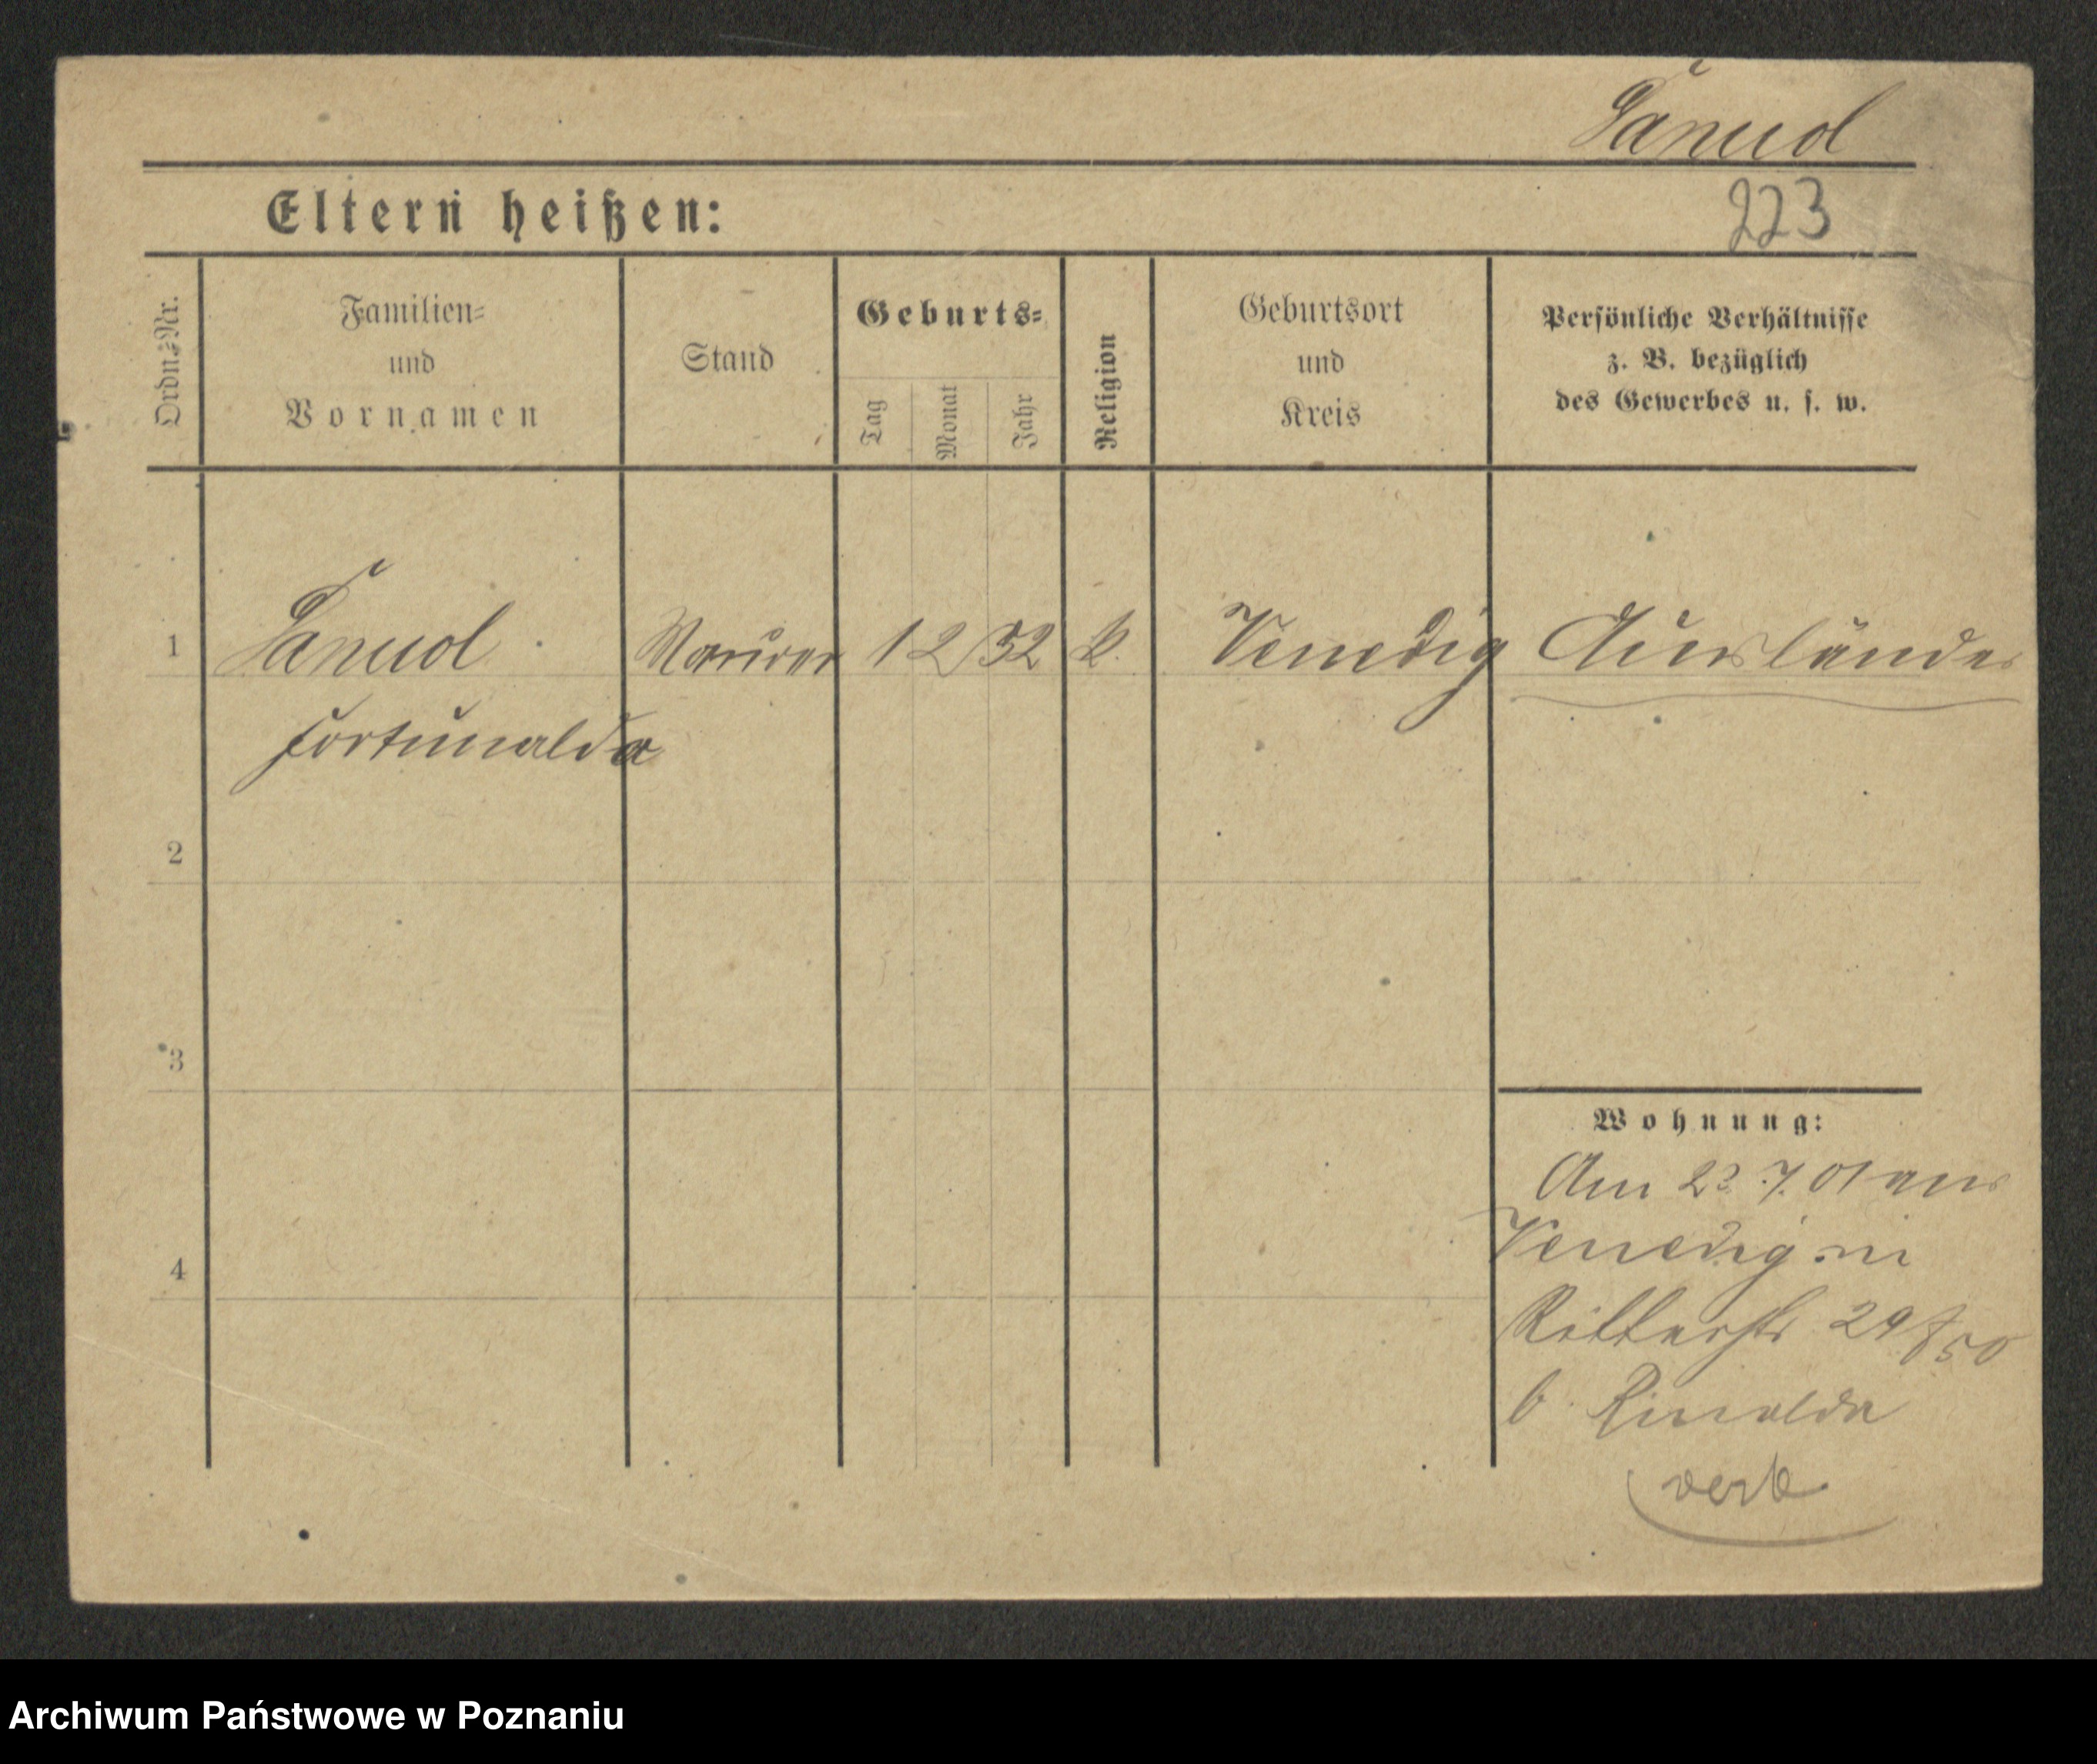 Sanuol
223
Eltern heißen:
Ordn.-Nr.
Familien-
und
Vornamen
Stand
Geburts-
Tag
Monat
Jahr
Religion
Geburtsort
und
Kreis
Persönliche Verhältnisse
z. B. bezüglich
des Gewerbes u. s. w.
1 Maurer 12 32 k. Venedig Ausländer
2
3
4
Wohnung:
Am 23. 7. 01 aus
Venedig in
Ritterstr 29
b. Rinalda
Archiwum Państwowe w Poznaniu